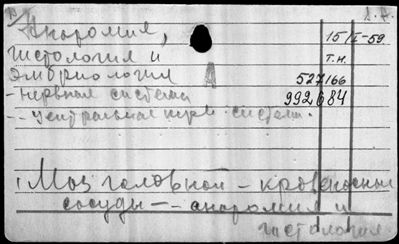 Анатомия,
гистология и
эмбриология
- нервная система
-- центральная нерв. система.
15/I-59
т.н.
527166
992684
А
Мозг головной - кровеносные
сосуды -- анатомия и
гистология